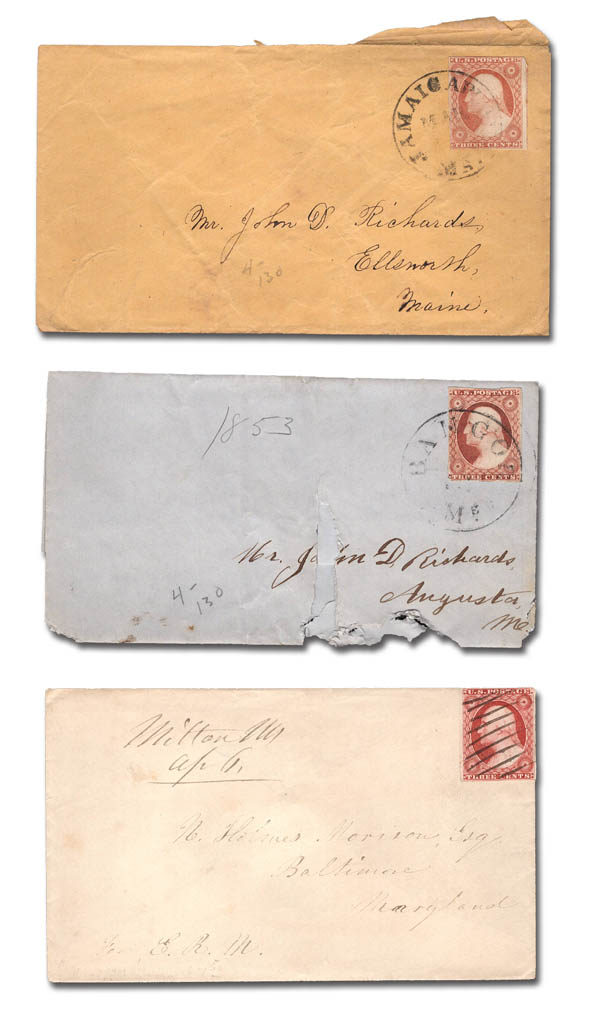 U.S. POSTAGE
JAMAICA P
MS.
THREE CENTS
Mr. John D. Richards,
Ellsworth,
Maine.
4-
130
1853
U.S. POSTAGE
THREE CENTS
Mr. John D. Richards
Augusta
Me
4-
130
U.S. POSTAGE
THREE CENTS
Milton Ms
Ap 6.
N. Holmes Morison, Esq
Baltimore
Maryland
For E. R. M.